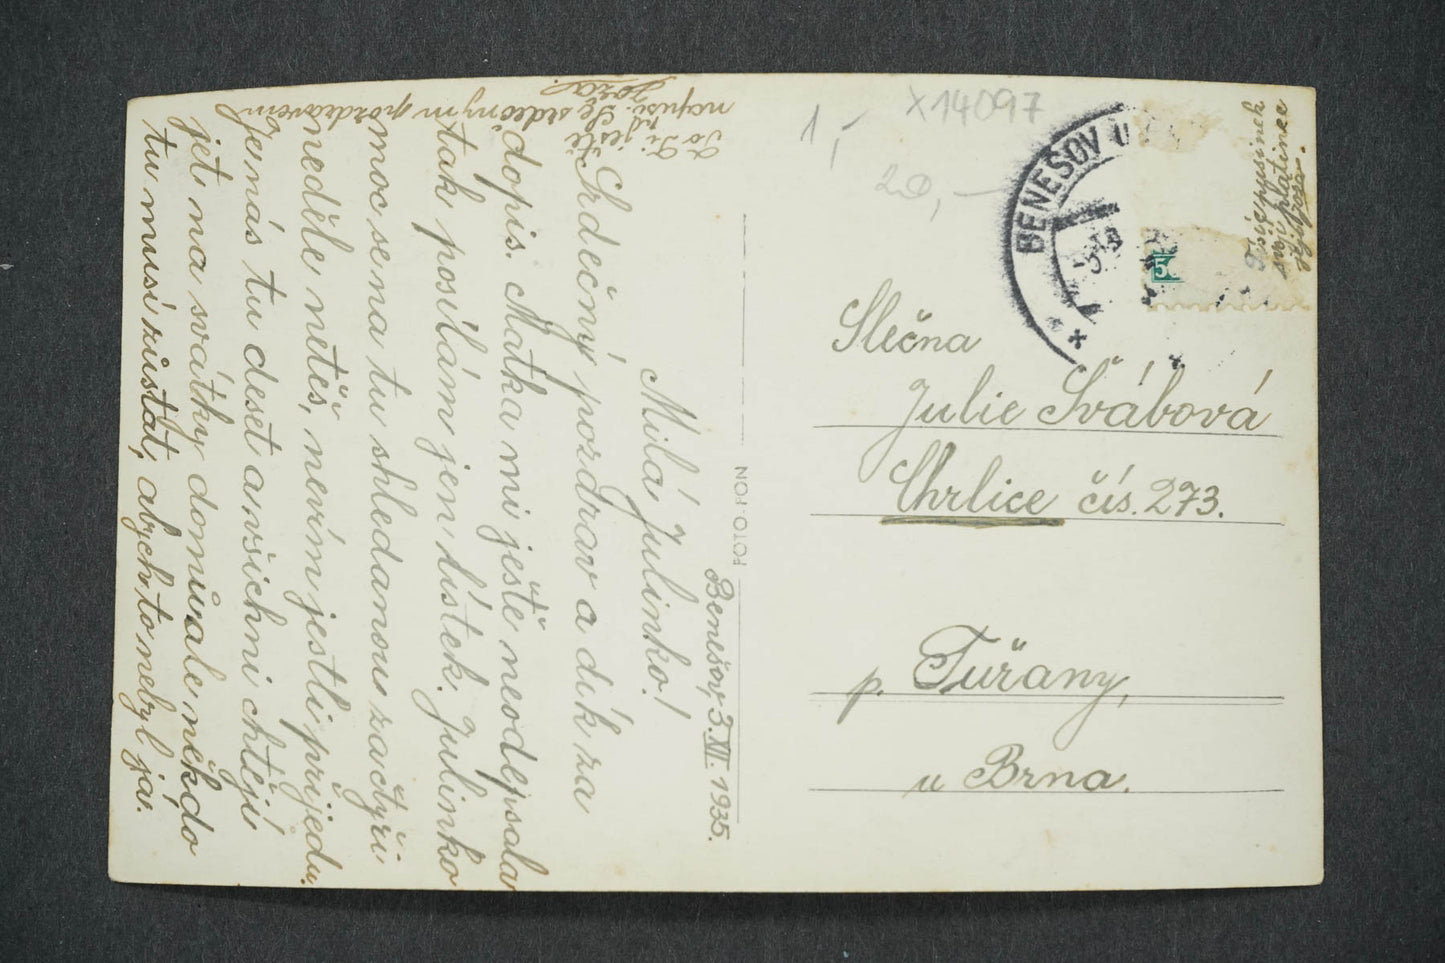 Benešov, 3. XII. 1935.
Milá Julinko!
Srdečný pozdrav a dík za
dopis. Matka mi ještě neodepsala
tak posílám jen lístek. Julinko
moc se na tu shledanou za čtyři
neděle netěš, nevím jestli přijedu.
Je nás tu deset a všichni chtějí
jet na svátky domů, ale někdo
tu musí zůstat, abych to nebyl já.
To Ti ještě
napíši. Se srdečným pozdravem
Joža.
FOTO-FON
1,-
X14097
20,-
BENEŠOV U
5
Slečna
Julie Švábová
Chrlice čís. 273.
p. Tuřany,
u Brna.